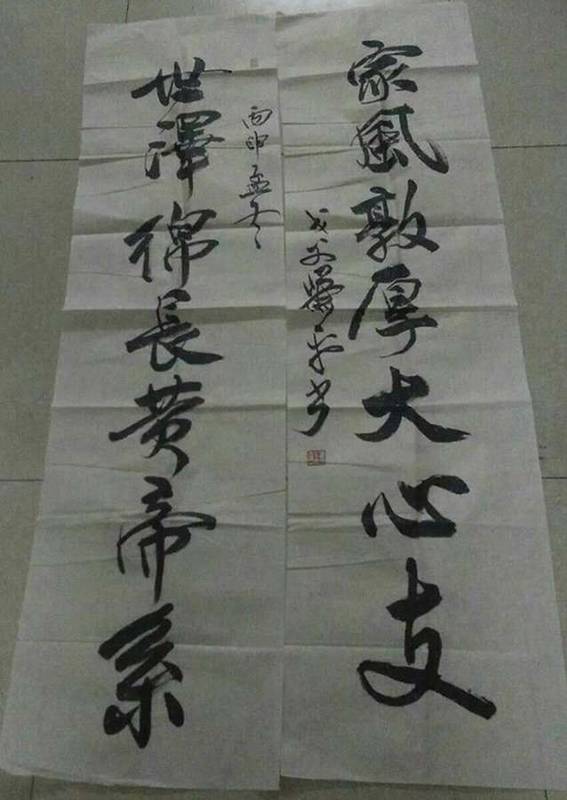 家風敦厚大心支
世澤綿長黄帝系
丙申孟冬